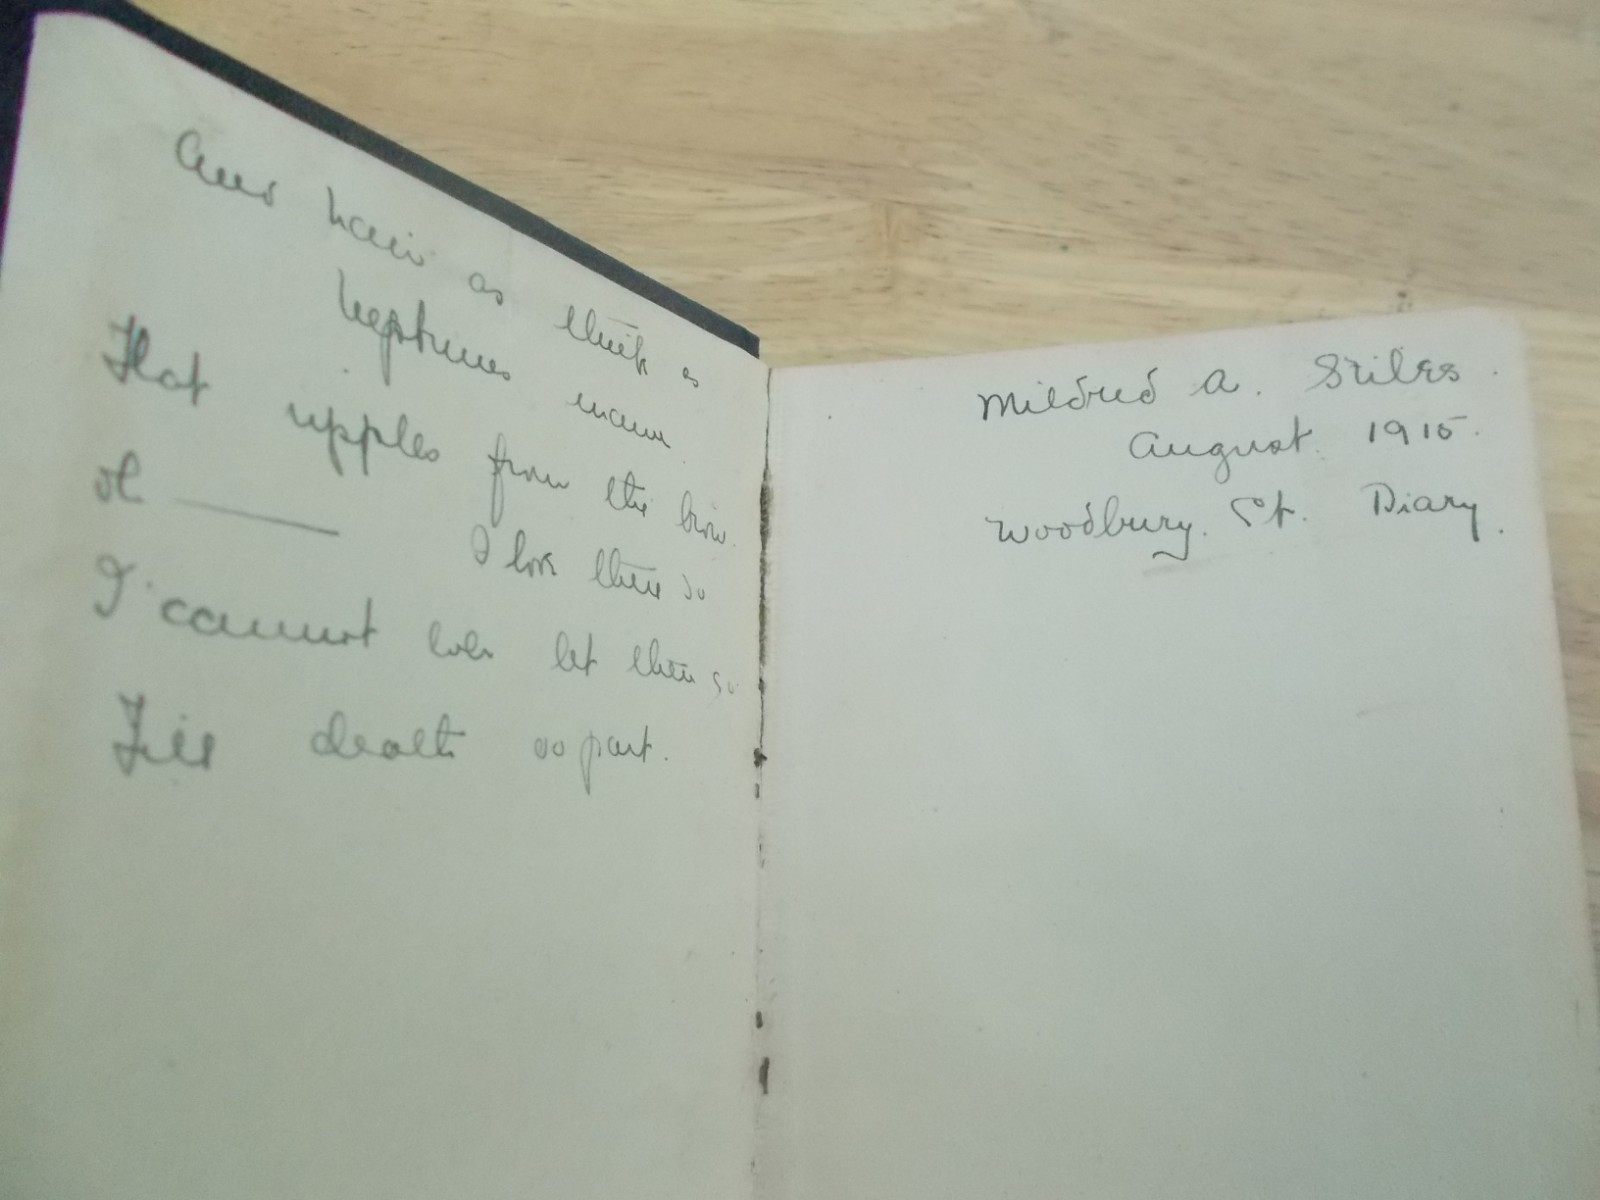 And hair as thick as
Neptunes mane
That ripples from the brow.
Oh ——— I love thee so
I cannot ever let thee go
Till death do part.
Mildred A. Stiles.
August. 1915.
Woodbury. Ct. Diary.